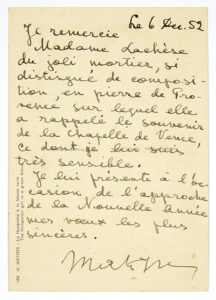 Le 6 Dec. 52
Je remercie
Madame Lachèse
du joli mortier, si
distingué de composi-
tion, en pierre de Pro-
vence sur lequel elle
a rappelé le souvenir
de la Chapelle de Vence,
ce dont je lui suis
très sensible.
Je lui présente à l'oc-
casion de l'approche
de la Nouvelle Année
mes vœux les plus
sincères.
H. MATISSE